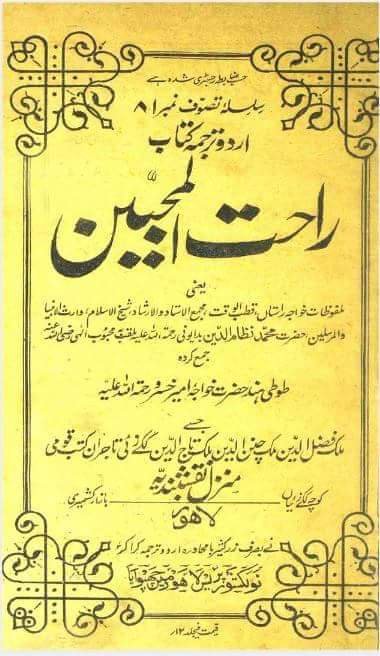 حسب ضابطہ رجسٹری شدہ ہے
سلسلہ تصوف نمبر ۸۱
اردو ترجمہ کتاب
راحت المحبین
یعنی
ملفوظات خواجہ راستاں، قطب الوقت، مجمع الاسناد والارشاد، شیخ الاسلام، وارث الانبیا
والمرسلین، حضرت محمد نظام الدین بدایونی رحمۃ اللہ علیہ ملقب محبوب الٰہی رضی اللہ عنہ
جمع کردہ
طوطی ہند حضرت خواجہ امیر خسرو رحمۃ اللہ علیہ
جسے
ملک فضل الدین ملک چنن الدین ملک تاج الدین ککے زئی تاجران کتب قومی
منزل نقشبندیہ
کوچہ ککے زئیاں بازار کشمیری
لاہور
نے بصرف زر کثیر بامحاورہ اردو ترجمہ کرا کر
نولکشور پریس لاہور میں چھپوایا
قیمت فیجلد ۱۲/